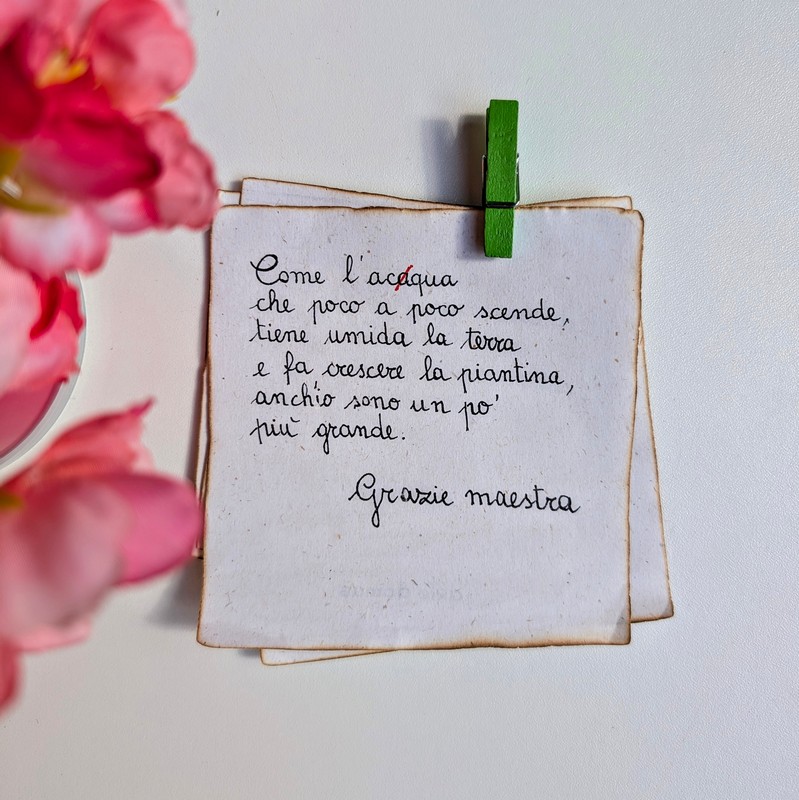 Come l'acaqua
che poco a poco scende,
tiene umida la terra
e fa crescere la piantina,
anch'io sono un po'
più grande.
Grazie maestra